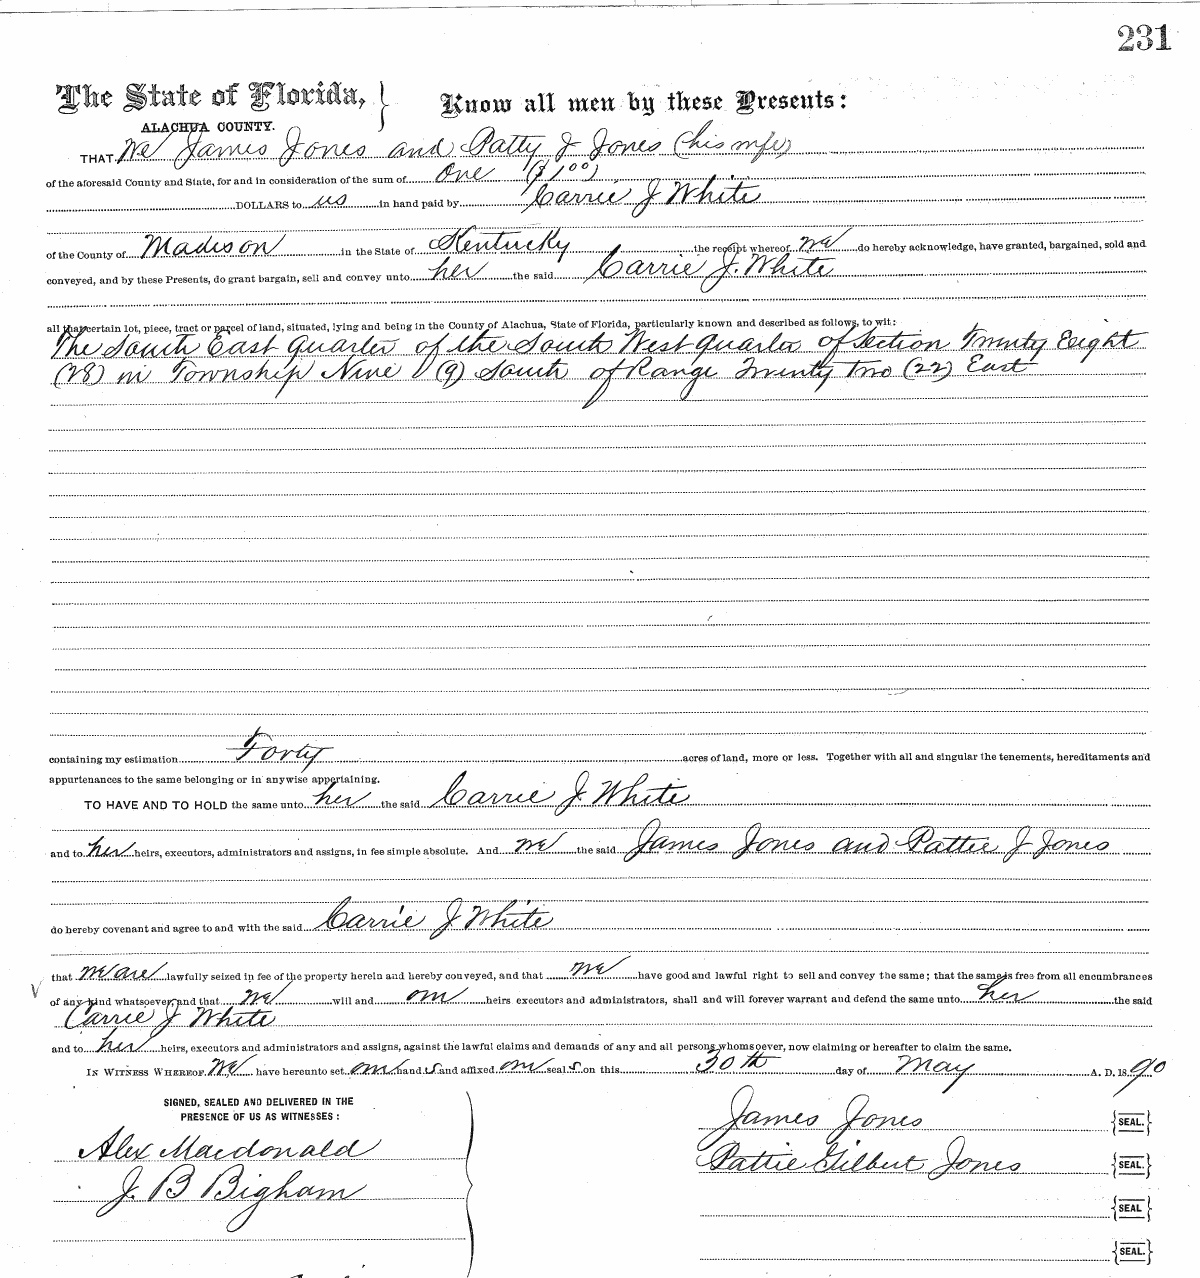 231
The State of Florida,
ALACHUA COUNTY.
Know all men by these Presents:
THAT We James Jones and Patty J Jones (his wife)
of the aforesaid County and State, for and in consideration of the sum of One ($1.00)
DOLLARS to us in hand paid by Carrie J White
of the County of Madison in the State of Kentucky the receipt whereof we do hereby acknowledge, have granted, bargained, sold and
conveyed, and by these Presents, do grant bargain, sell and convey unto her the said Carrie J. White
all that certain lot, piece, tract or parcel of land, situated, lying and being in the County of Alachua, State of Florida, particularly known and described as follows, to wit:
The South East Quarter of the South West Quarter of Section Twenty Eight
(28) in Township Nine (9) South of Range Twenty Two (22) East
containing my estimation Forty acres of land, more or less. Together with all and singular the tenements, hereditaments and
appurtenances to the same belonging or in anywise appertaining.
TO HAVE AND TO HOLD the same unto her the said Carrie J White
and to her heirs, executors, administrators and assigns, in fee simple absolute. And we the said James Jones and Pattie J Jones
do hereby covenant and agree to and with the said Carrie J White
that we are lawfully seized in fee of the property herein and hereby conveyed, and that we have good and lawful right to sell and convey the same; that the same is free from all encumbrances
of any kind whatsoever, and that we will and our heirs executors and administrators, shall and will forever warrant and defend the same unto her the said
Carrie J White
and to her heirs, executors and administrators and assigns, against the lawful claims and demands of any and all persons whomsoever, now claiming or hereafter to claim the same.
IN WITNESS WHEREOF, We have hereunto set our hand s and affixed our seal s on this 30th day of May A. D. 18 90
SIGNED, SEALED AND DELIVERED IN THE
PRESENCE OF US AS WITNESSES:
Alex Macdonald
J. B Bigham
James Jones {SEAL.}
Pattie Gilbert Jones {SEAL.}
{SEAL}
{SEAL.}